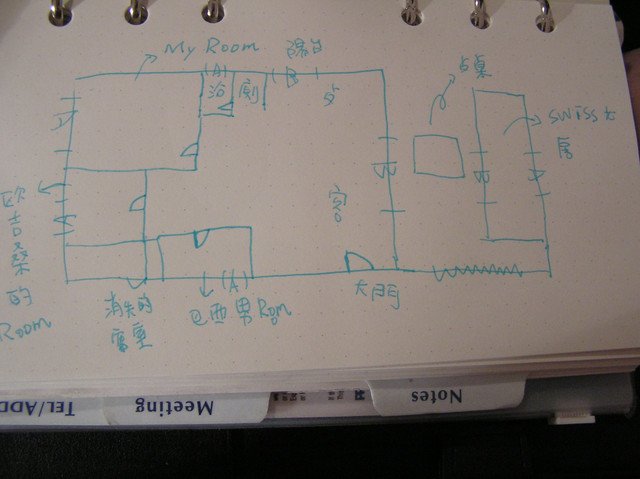 My Room
陽台
(A)
浴
廁
(B)
占桌
SWISS大
房
客
歐
吉
桑
的
Room
消失的
(A)
巴西男Room
大門
TEL/ADD
Meeting
Notes